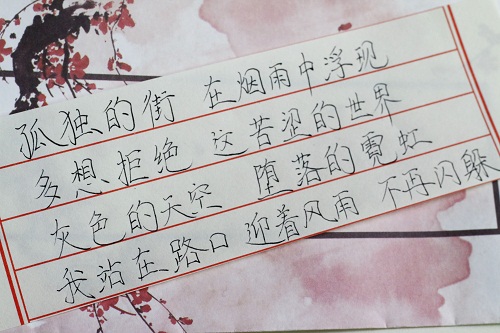 孤独的街 在烟雨中浮现
多想拒绝 这苦涩的世界
灰色的天空 堕落的霓虹
我站在路口 迎着风雨 不再闪躲